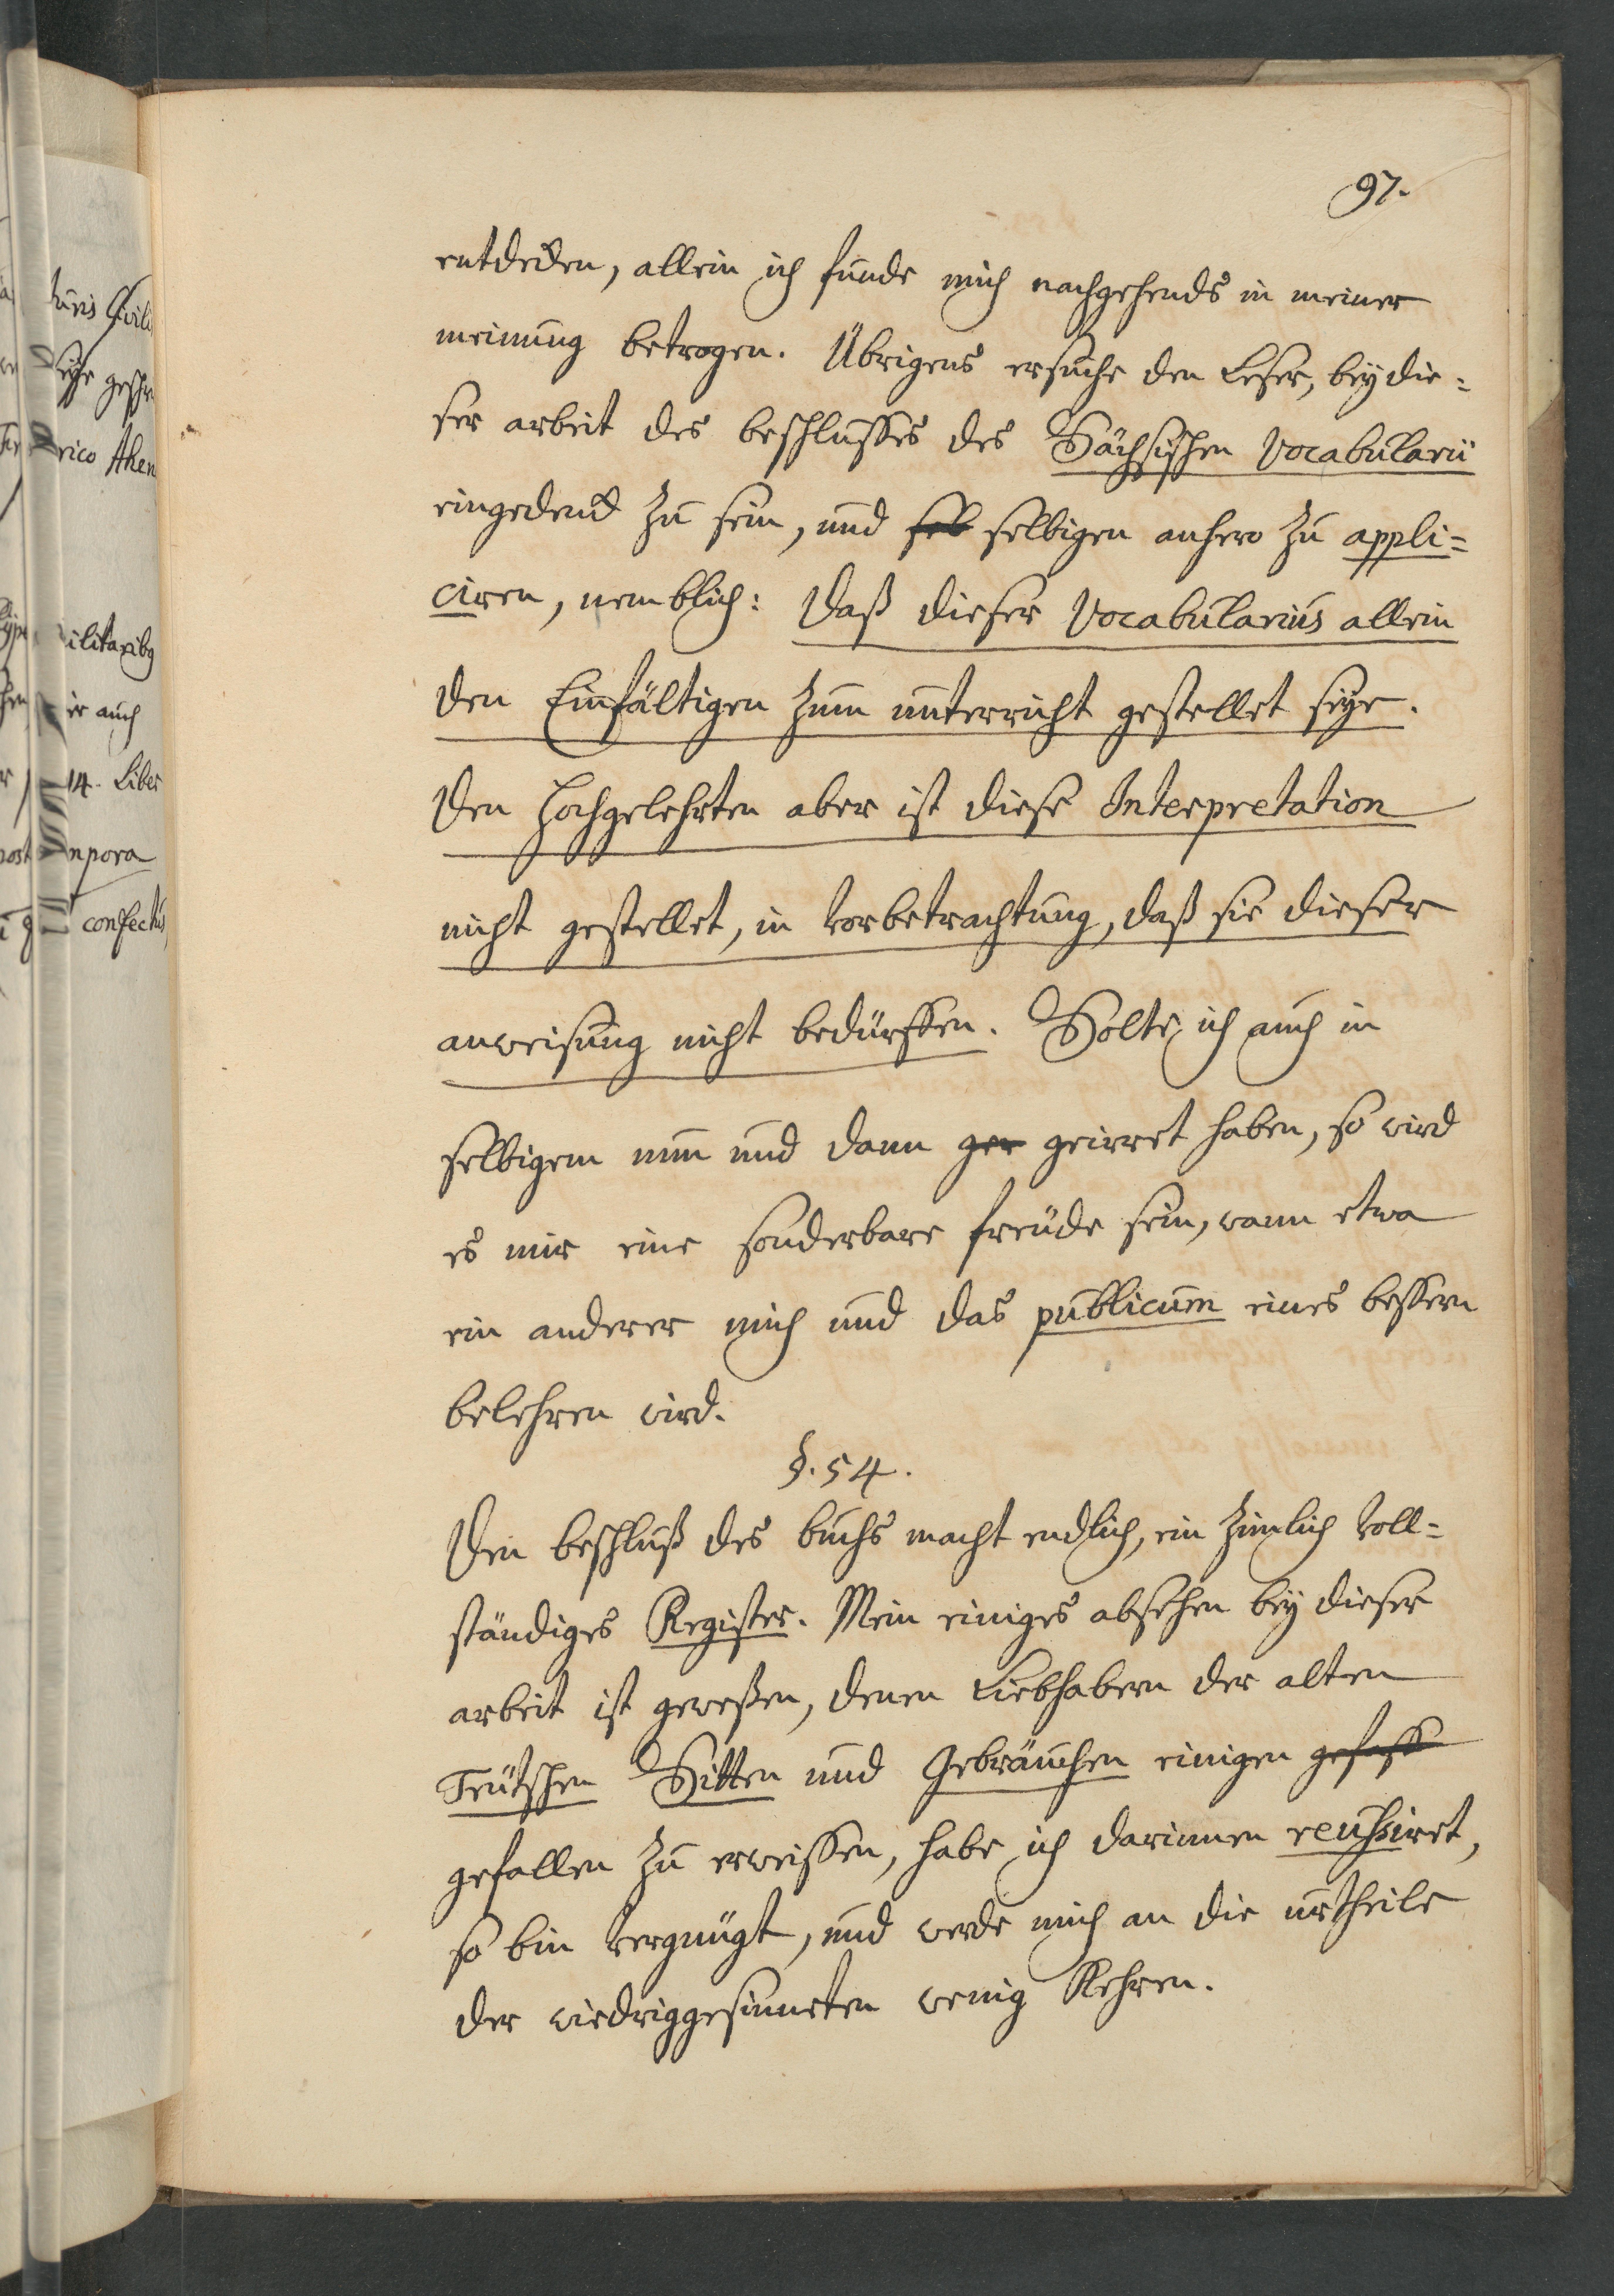 97.
entdecken, allein ich funde mich nachgehends in meiner
meinung betrogen. Übrigens ersuche den Leser, bey die=
ser arbeit des beschlusses des Sächsischen Vocabularii
eingedenck zu sein, und sel selbigen anhero zu appli=
ciren, nemblich: Daß dieser Vocabularius allein
den Einfältigen zum unterricht gestellet seye.
Den Hochgelehrten aber ist diese Interpretation
nicht gestellet, in vorbetrachtung, daß sie dieser
anweisung nicht bedürffen. Solte ich auch in
selbigem nun und dann ger geirret haben, so wird
es mir eine sonderbare freüde sein, wann etwa
ein anderer mich und das publicum eines bessern
belehren wird.
§. 54.
Den beschluß des buchs macht endlich, ein zimlich voll=
ständiges Register. Mein einiges absehen bey dieser
arbeit ist geweßen, denen Liebhabern der alten
Teütschen Sitten und Gebräuchen einigen gefass
gefallen zu erweissen, habe ich darinnen reussiret,
so bin vergnügt, und werde mich an die urtheile
der wiedriggesinneten wenig Kehren.